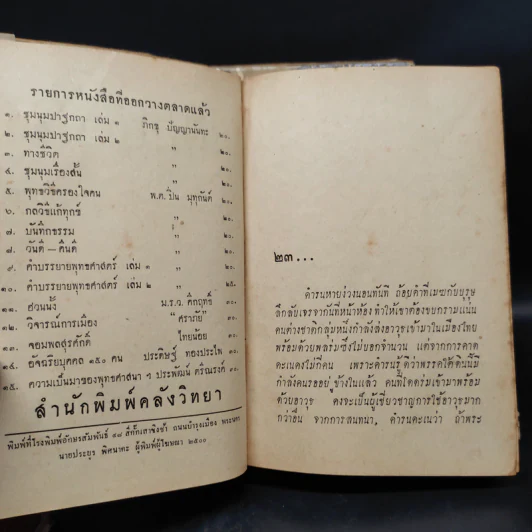 รายการหนังสือที่ออกวางตลาดแล้ว
๑. ชุมนุมปาฐกถา เล่ม ๑ ภิกขุ ปัญญานันทะ ๒๐.
๒. ชุมนุมปาฐกถา เล่ม ๒ " ๒๐.
๓. ทางชีวิต " ๒๐.
๔. ชุมนุมเรื่องสั้น " ๒๐.
๕. พุทธวิธีครองใจคน พ.ต. ปิ่น มุทุกันต์ ๒๐.
๖. กลวิธีแก้ทุกข์ " ๒๐.
๗. บันทึกธรรม " ๒๐.
๘. วันดี—คืนดี " ๒๐.
๙. คำบรรยายพุทธศาสตร์ เล่ม ๑ " ๒๐.
๑๐. คำบรรยายพุทธศาสตร์ เล่ม ๒ " ๒๕.
๑๑. ฮวนนั้ง ม.ร.ว. คึกฤทธิ์
๑๒. วิจารณ์การเมือง "ศราภัย"
๑๓. จอมพลสฤษดิ์ ไทยน้อย
๑๔. อัจฉริยบุคคล ๑๕๐ คน ประดิษฐ์ ทองประไพ
๑๕. ความเป็นมาของพุทธศาสนา ฯ ประพัฒน์ ตรีณรงค์
สำนักพิมพ์คลังวิทยา
พิมพ์ที่โรงพิมพ์อักษรสัมพันธ์ ๔๗ สี่กั๊กเสาชิงช้า ถนนบำรุงเมือง พระนคร
นายประยูร พิศนาคะ ผู้พิมพ์ผู้โฆษณา ๒๕๐๐
๒๓...
คำรนหายง่วงนอนทันที ถ้อยคำที่เมฆกับบุรุษ
ลึกลับเจรจากันที่หน้าห้อง ทำให้เขาต้องขบกรามแน่น
คนต่างชาติกลุ่มหนึ่งกำลังส่งอาวุธเข้ามาในเมืองไทย
พร้อมด้วยพลร่มซึ่งไม่บอกจำนวน แต่จากการคาด
คะเนคงไม่กี่คน เพราะคำรนรู้ดีว่าพรรคใต้ดินนี้มี
กำลังคนรออยู่ข้างในแล้ว คนที่โดดร่มเข้ามาพร้อม
ด้วยอาวุธ คงจะเป็นผู้เชี่ยวชาญการใช้อาวุธมาก
กว่าอื่น จากการสนทนา, คำรนคะเนว่า ถ้าพระ